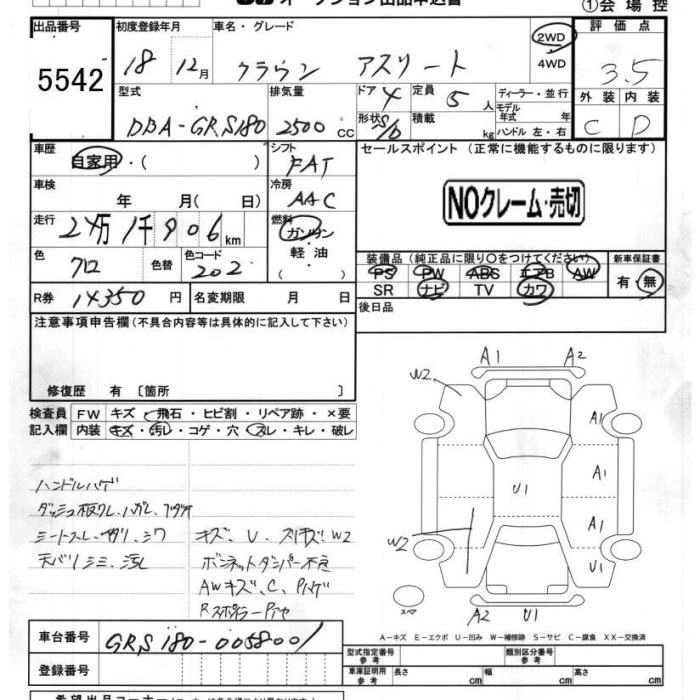 オークション出品申込書
①会場控
出品番号 初度登録年月 車名・グレード 2WD 評価点
5542 18 12月 クラウン アスリート 4WD 3.5
型式 排気量 ドア 4 定員 5 人 ディーラー・並行 外装 内装
モデル年式 年
DBA-GRS180 2500 CC 形状 S/D 積載 kg ハンドル 左・右 C D
車歴 シフト セールスポイント (正常に機能するものに限ります)
自家用・( ) FAT
車検 冷房 NOクレーム・売切
年 月( 日) AAC
走行 燃料
2万 1千 906 km ガソリン
色 色替 色コード 軽油 装備品 (純正品に限り〇をつけてください) 新車保証書
クロ 202 ( ) PS PW ABS エアB AW 有・無
SR ナビ TV カワ
R券 14350 円 名変期限 月 日 後日品
注意事項申告欄 (不具合内容等は具体的に記入して下さい)
修復歴 有 〔箇所 〕
検査員 FW キズ・飛石・ヒビ割・リペア跡・×要
記入欄 内装 キズ・汚レ・コゲ・穴・スレ・キレ・破レ
A1 A2
W2
A1
A1
U1
A1
W2 U1
スペア
A2 U1
ハンドルハゲ
シートスレ・ヘタリ・シワ
天バリシミ、汚レ
キズ、U、スリキズW2
ボンネットダンパー不良
A-キズ E-エクボ U-凹み W-補修跡 S-サビ C-腐食 XX-交換済
車台番号 GRS180-0058001
型式指定番号 参考 類別区分番号 参考
登録番号 車庫証明用 参考 長さ cm 幅 cm 高さ cm